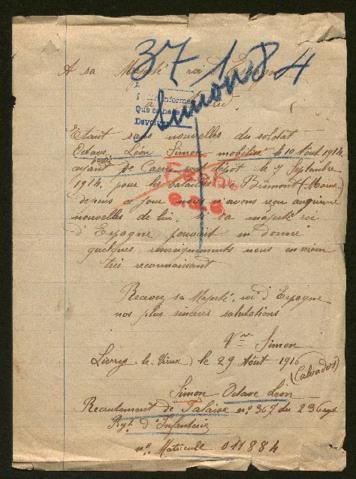 37184
A sa Majesté roi
Simon
Etant sans nouvelles du soldat
Octave, Léon, Simon mobilisé le 10 Août 1914
ayant de Caen dépôt le 9 Septembre
1914, pour les Marne)
depuis ce jour nous n'avons reçu aucune
nouvelles de lui, si sa majesté roi
d'Espagne pouvait m'donner
quelques renseignements nous en serions
très reconnaissant
Recevez sa Majesté, roi d'Espagne
nos plus sincères salutations
Vve Simon
Livry le Vieux, le 29 Août 1916
(Calvados)
Simon Octave Léon
Recrutement de Falaise no 367 du 236eme
Rgt d'Infanterie
no Matricule 011884